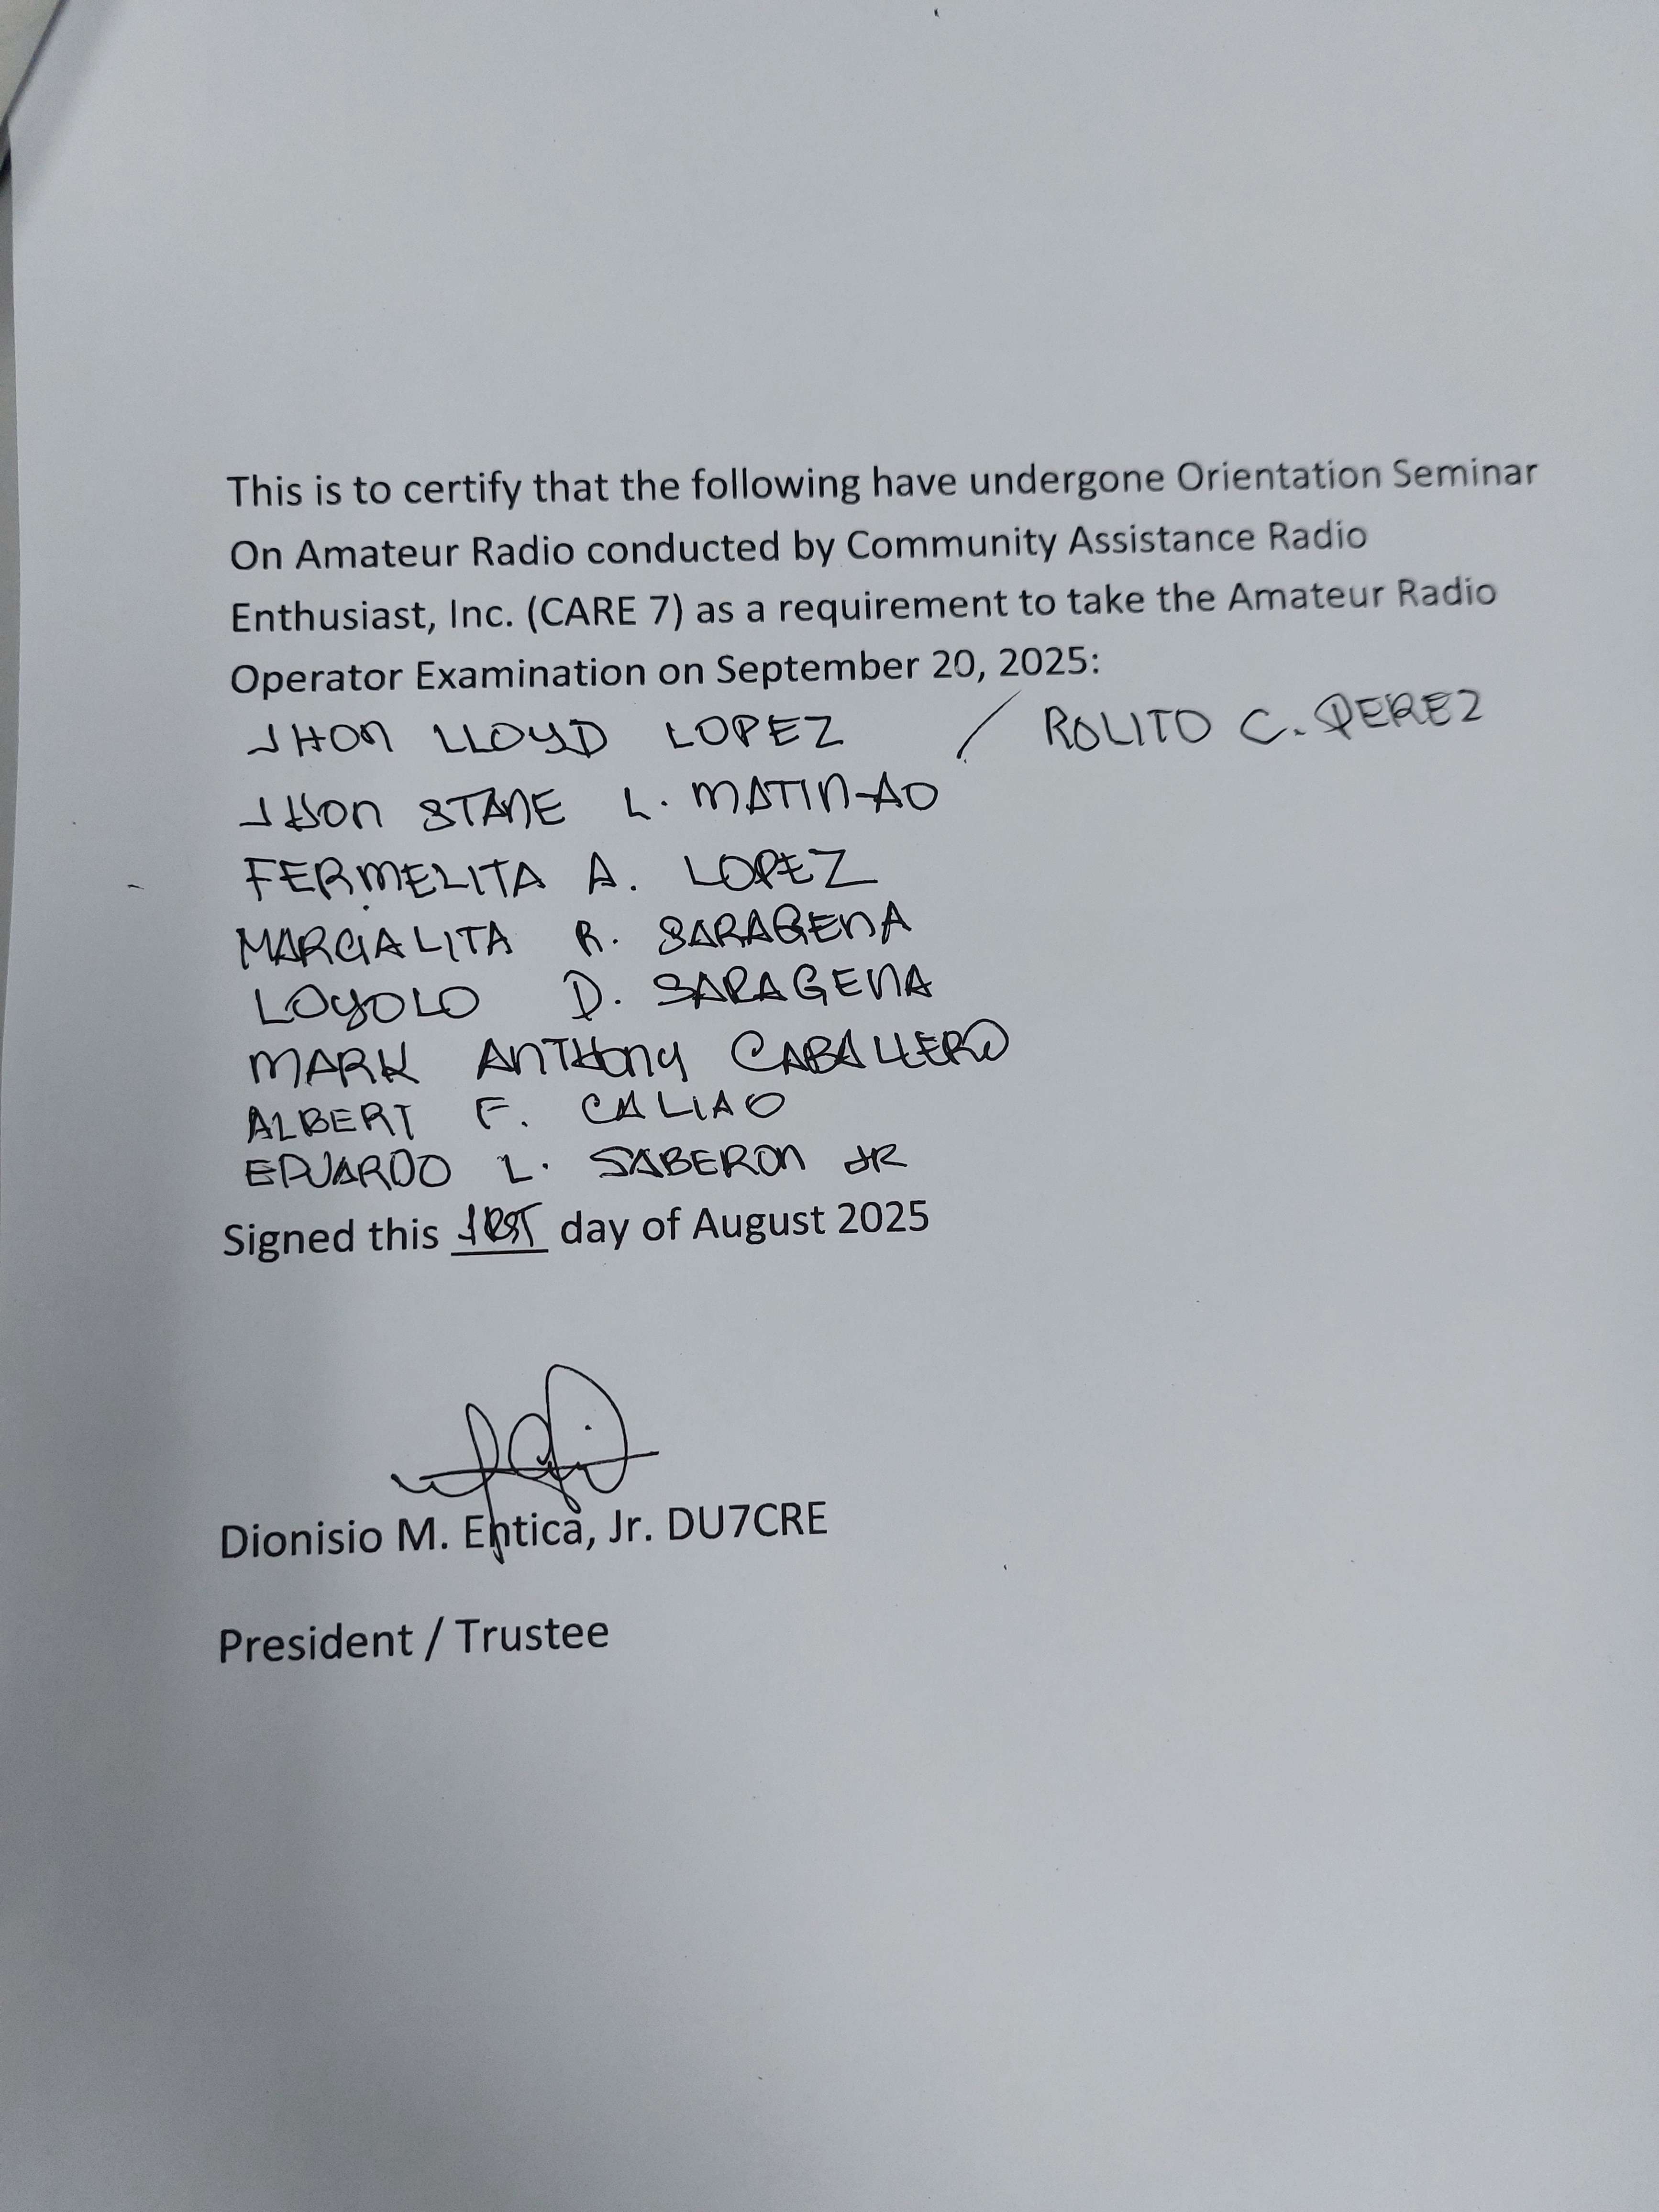 This is to certify that the following have undergone Orientation Seminar
On Amateur Radio conducted by Community Assistance Radio
Enthusiast, Inc. (CARE 7) as a requirement to take the Amateur Radio
Operator Examination on September 20, 2025:
JHON LLOYD LOPEZ / ROLITO C. PEREZ
JHON STANE L. MATIN-AO
FERMELITA A. LOPEZ
MARGIALITA R. SARAGENA
LOYOLO D. SARAGENA
MARK ANTHONY CABALLERO
ALBERT F. CALIAO
EDUARDO L. SABERON JR
Signed this day of August 2025
Dionisio M. Entica, Jr. DU7CRE
President / Trustee